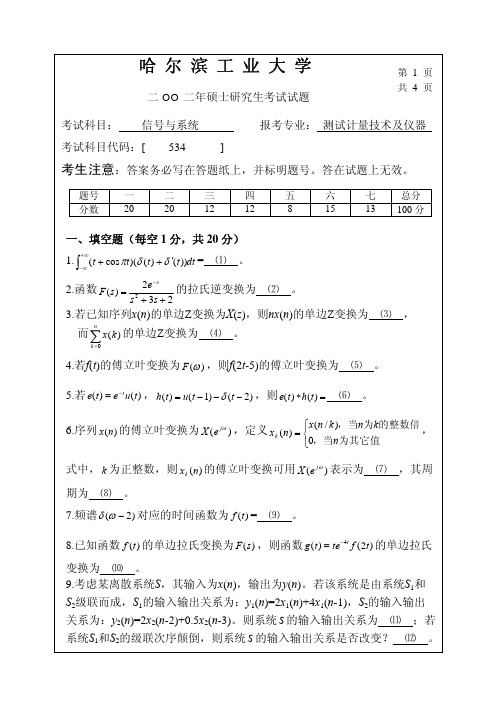 哈 尔 滨 工 业 大 学
第 1 页
二 OO 二年硕士研究生考试试题
共 4 页
考试科目: 信号与系统 报考专业: 测试计量技术及仪器
考试科目代码:[ 534 ]
考生注意:答案务必写在答题纸上,并标明题号。答在试题上无效。
题号 一 二 三 四 五 六 七 总分
分数 20 20 12 12 8 15 13 100 分
一、填空题(每空 1 分,共 20 分)
1. ∫_{-∞}^{+∞}(t + cos πt)(δ(t) + δ′(t))dt = ⑴ 。
2.函数 F(s) = 2e^{-s}/(s²+3s+2) 的拉氏逆变换为 ⑵ 。
3.已知序列x(n)的单边Z变换为X(z),则nx(n)的单边Z变换为 ⑶ ,
而∑_{k=0}^{n} x(k)的单边Z变换为 ⑷ 。
4.若f(t)的傅立叶变换为F(ω),则f(2t-5)的傅立叶变换为 ⑸ 。
5.若e(t) = e^{-t}u(t),h(t) = u(t-1) - δ(t-2),则e(t)*h(t) = ⑹ 。
6.序列x(n)的傅立叶变换为X(e^{jω}),定义x_k(n) = {x(n/k),当n为k的整数倍
0,当n为其它值,
式中,k为正整数,则x_k(n)的傅立叶变换可用X(e^{jω})表示为 ⑺ ,其周
期为 ⑻ 。
7.频谱δ(ω-2)对应的时间函数为f(t) = ⑼ 。
8.已知函数f(t)的单边拉氏变换为F(s),则函数g(t) = te^{-4t}f(2t)的单边拉氏
变换为 ⑽ 。
9.考虑某离散系统S,其输入为x(n),输出为y(n)。若该系统是由系统S₁和
S₂级联而成,S₁的输入输出关系为:y₁(n)=2x₁(n)+4x₁(n-1),S₂的输入输出
关系为:y₂(n)=2x₂(n-2)+0.5x₂(n-3)。则系统S的输入输出关系为 ⑾ ;若
系统S₁和S₂的级联次序颠倒,则系统S的输入输出关系是否改变? ⑿ 。